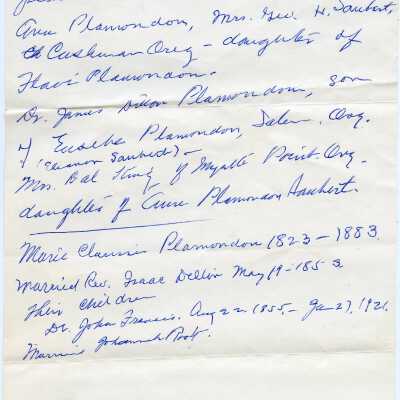 Ann Plamondon, Mrs. Geo. H. Saubert,
of Cushman Oreg - daughter of
Flavi Plamondon.
Dr. James Dillon Plamondon, son
of Eusebe Plamondon, Salem, Oreg.
(Eleanor Saubert) -
Mrs. Bal King of Myrtle Point. Oreg.
daughter of Anne Plamondon Saubert.
Marie Plamondon 1823 - 1883.
Married Rev. Isaac Dillon May 19 - 1853
Their Children
Dr. John Francis. Aug 22 1855. - Jan 27, 1921.
Married Johannah